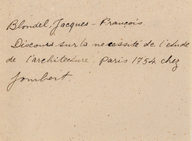 Blondel, Jacques-François
Discours sur la necessité de l'etude
de l'architecture. Paris 1754 chez
Jombert